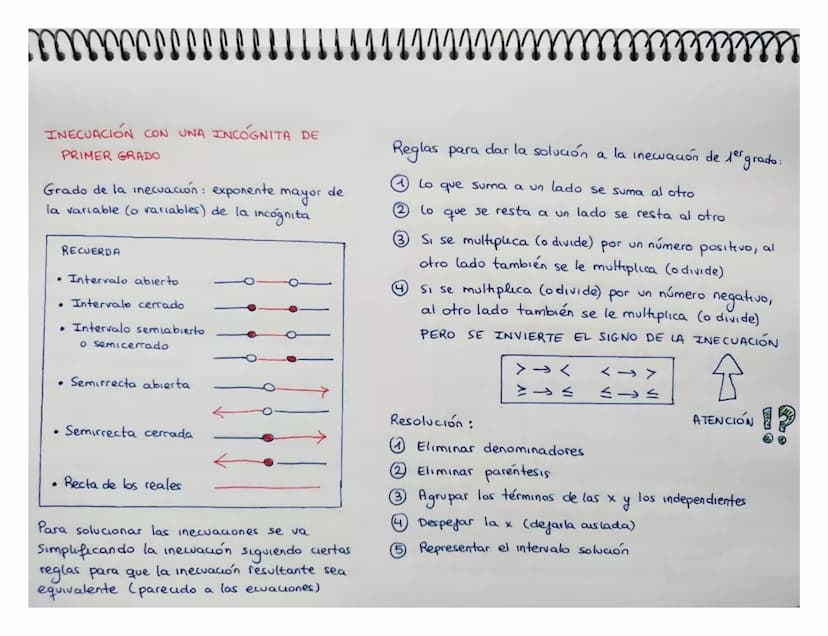 INECUACIÓN CON UNA INCÓGNITA DE
PRIMER GRADO
Grado de la inecuación: exponente mayor de
la variable (o variables) de la incógnita
RECUERDA
• Intervalo abierto
• Intervalo cerrado
• Intervalo semiabierto
o semicerrado
• Semirrecta abierta
• Semirrecta cerrada
• Recta de los reales
Para solucionar las inecuaciones se va
simplificando la inecuación siguiendo ciertas
reglas para que la inecuación resultante sea
equivalente (parecido a las ecuaciones)
Reglas para dar la solución a la inecuación de 1er grado:
① Lo que suma a un lado se suma al otro
② Lo que se resta a un lado se resta al otro
③ Si se multiplica (o divide) por un número positivo, al
otro lado también se le multiplica (o divide)
④ Si se multiplica (o divide) por un número negativo,
al otro lado también se le multiplica (o divide)
PERO SE INVIERTE EL SIGNO DE LA INECUACIÓN
> → < < → >
≥ → ≤ ≤ → ≤
ATENCIÓN !?
Resolución:
① Eliminar denominadores
② Eliminar paréntesis
③ Agrupar los términos de las x y los independientes
④ Despejar la x (dejarla aislada)
⑤ Representar el intervalo solución